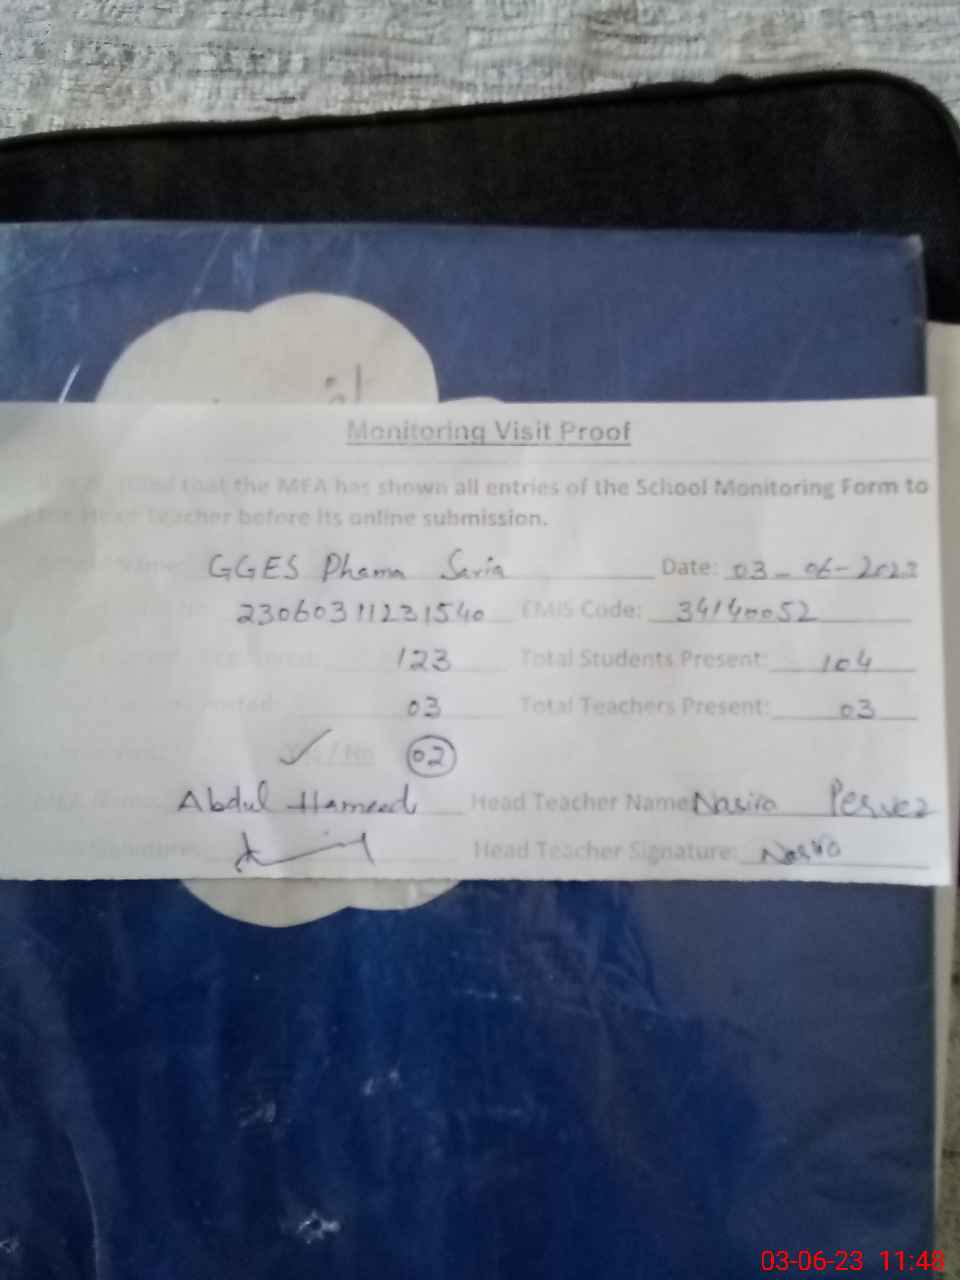 Monitoring Visit Proof
that the MEA has shown all entries of the School Monitoring Form to
Teacher before its online submission.
Name: GGES Phama Saria Date: 03-06-2023
23060311231540 EMIS Code: 34140052
123 Total Students Present: 104
03 Total Teachers Present: 03
Yes / No 02
MEA Name: Abdul Hameed Head Teacher Name: Nasira Pervez
Signature: Head Teacher Signature: Nasira
03-06-23 11:48